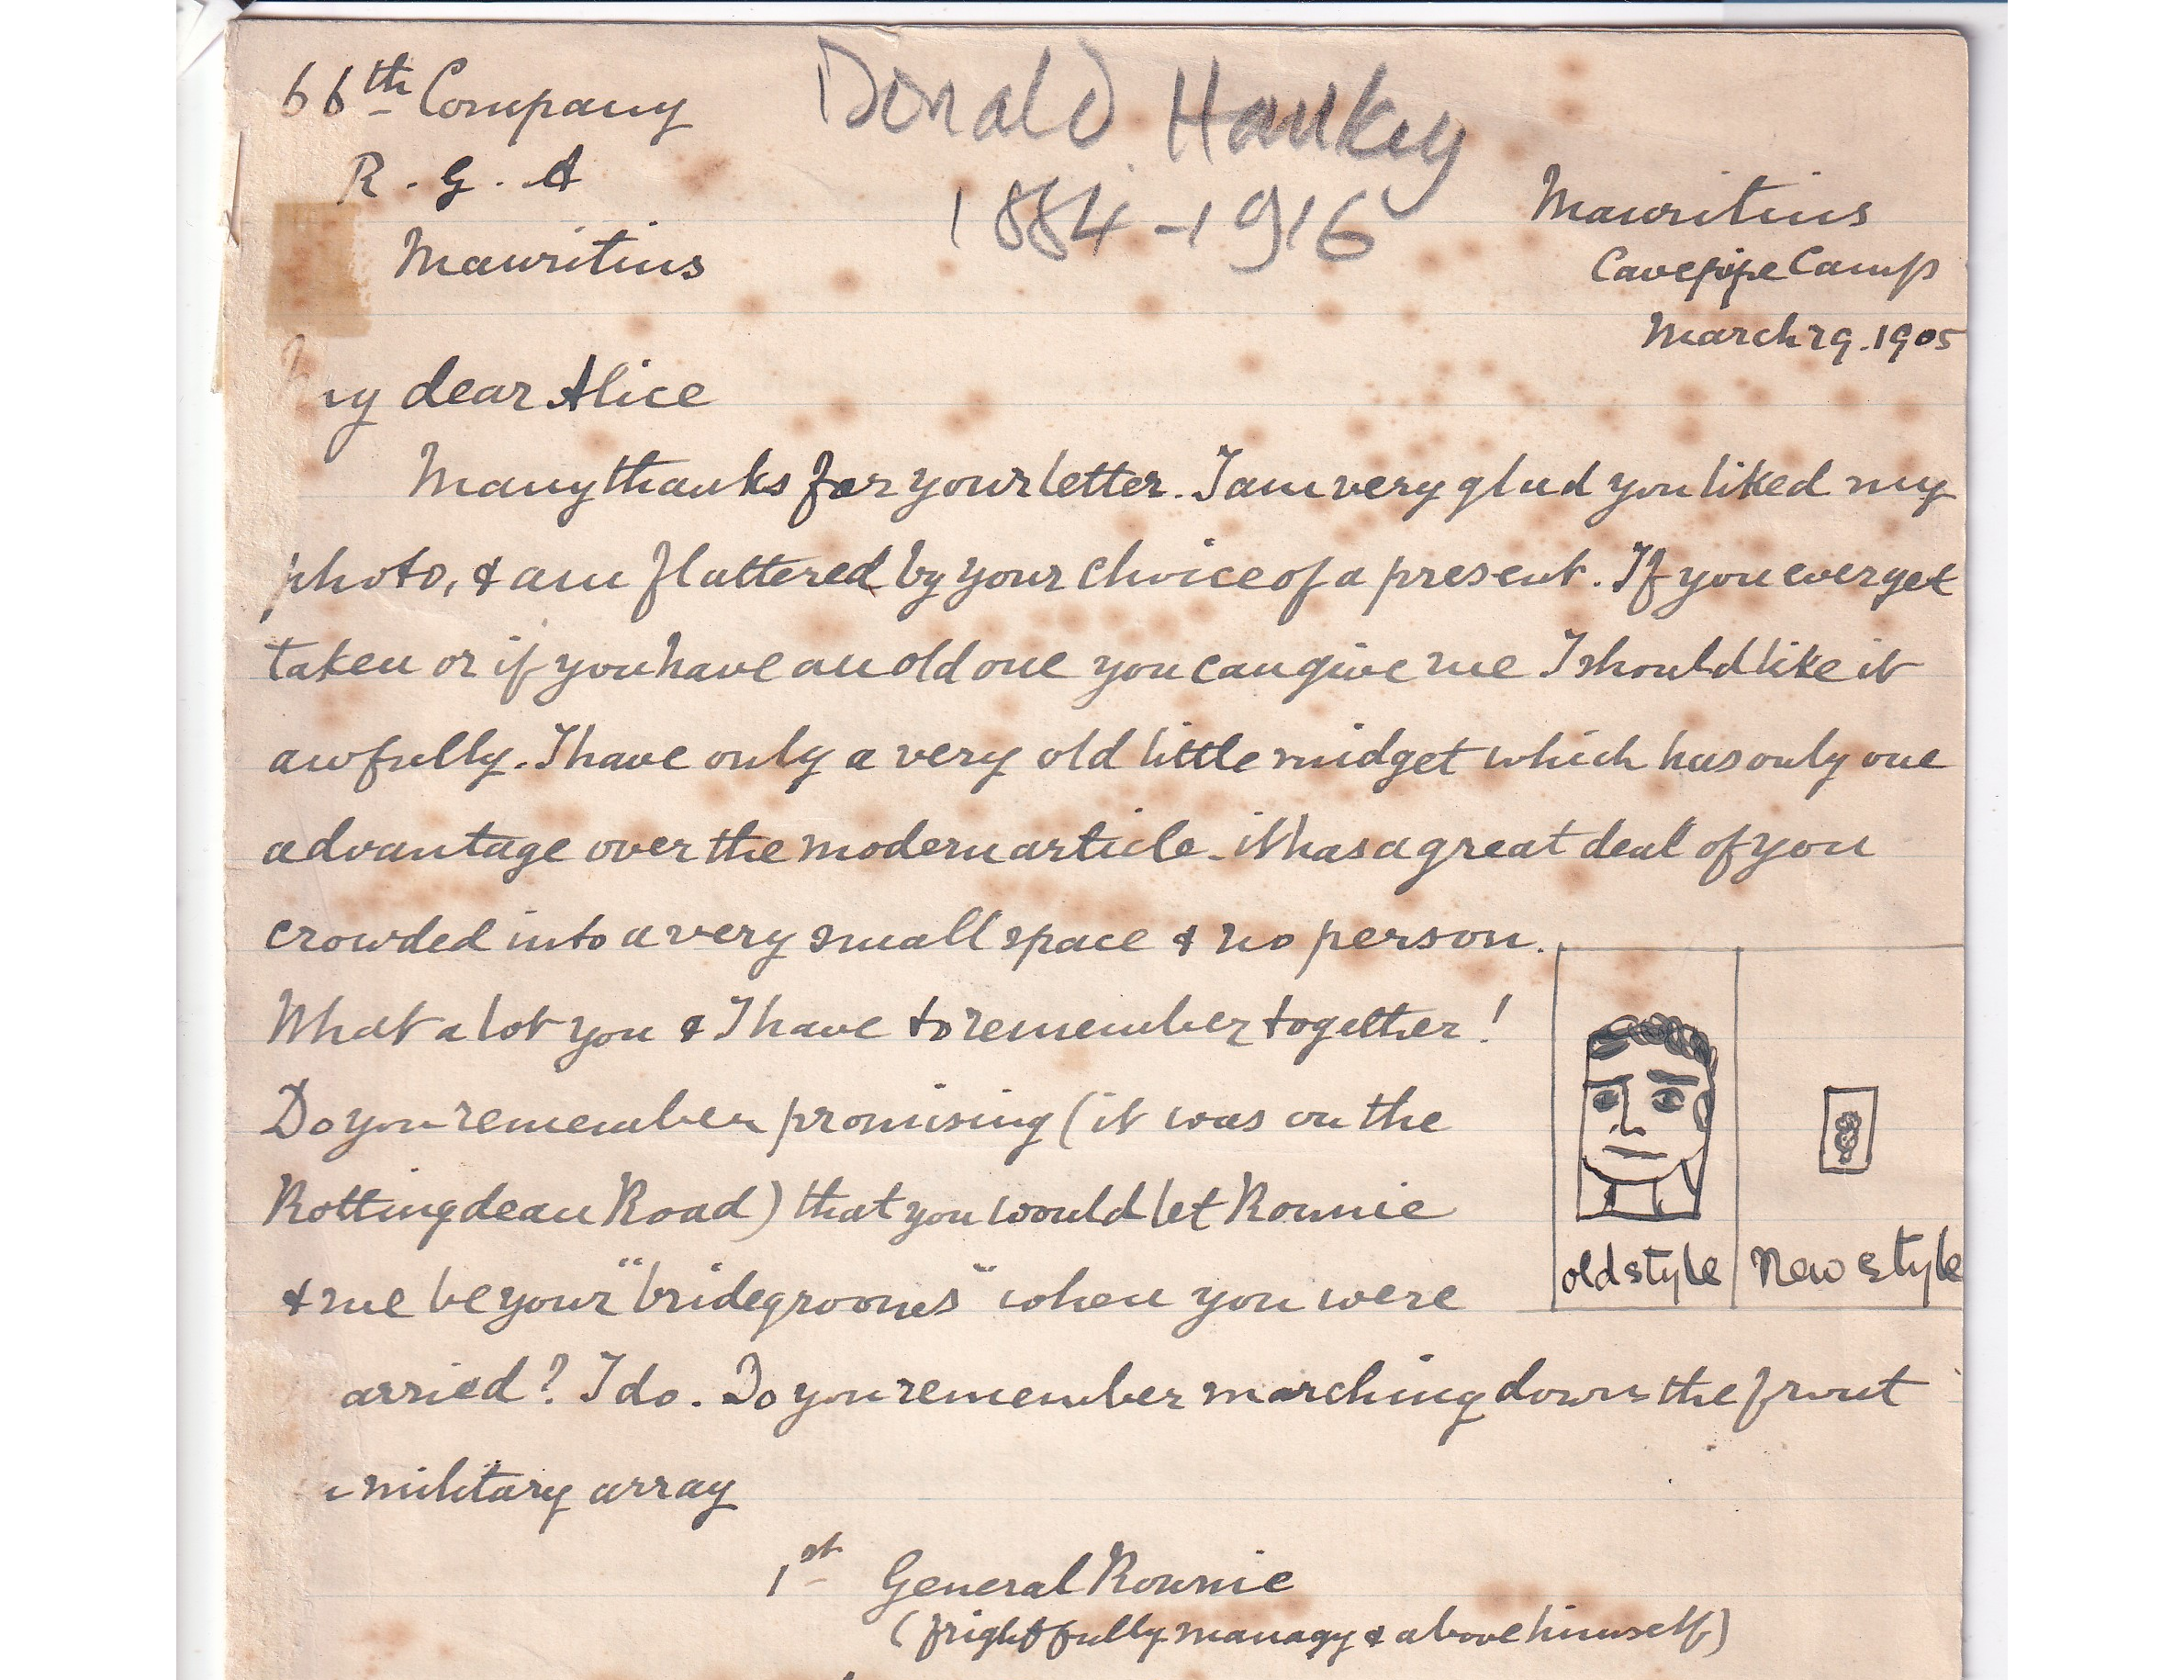 66th Company
R. G. A
Mauritius
Donald Hankey
1884-1916
Mauritius
Curepipe Camp
March 29. 1905
My dear Alice
Many thanks for your letter. I am very glad you liked my
photo, & am flattered by your choice of a present. If you ever get
taken or if you have an old one you can give me I should like it
awfully. I have only a very old little midget which has only one
advantage over the modern article - it has a great deal of you
crowded into a very small space & no person.
What a lot you & I have to remember together!
Do you remember promising (it was on the
Rottingdean Road) that you would let Ronnie
& me be your "bridegrooms" when you were
arried? I do. Do you remember marching down the front
military array
old style
New style
1st General Ronnie
(frightfully managy & above himself)